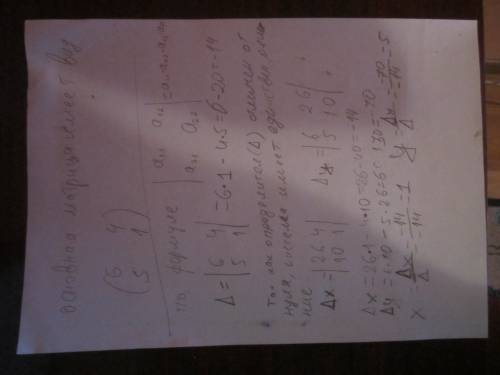 основная матрица имеет вид
(6 4
5 1)
по формуле |a₁₁ a₁₂
a₂₁ a₂₂| = a₁₁a₂₂
Δ = |6 4
5 1| = 6•1 - 4•5 = 6 - 20 = -14
Так как определитель(Δ) отличен от
нуля, система имеет единствен. реше-
ние
Δx = |26 4
10 1| ; Δy = |6 26
5 10| ;
Δx = 26•1 - 4•10 = 26 - 40 = -14
Δy = 6•10 - 5•26 = 60 - 130 = -70
x = Δx/Δ = -14/-14 = 1 y = Δy/Δ = -70/-14 = 5